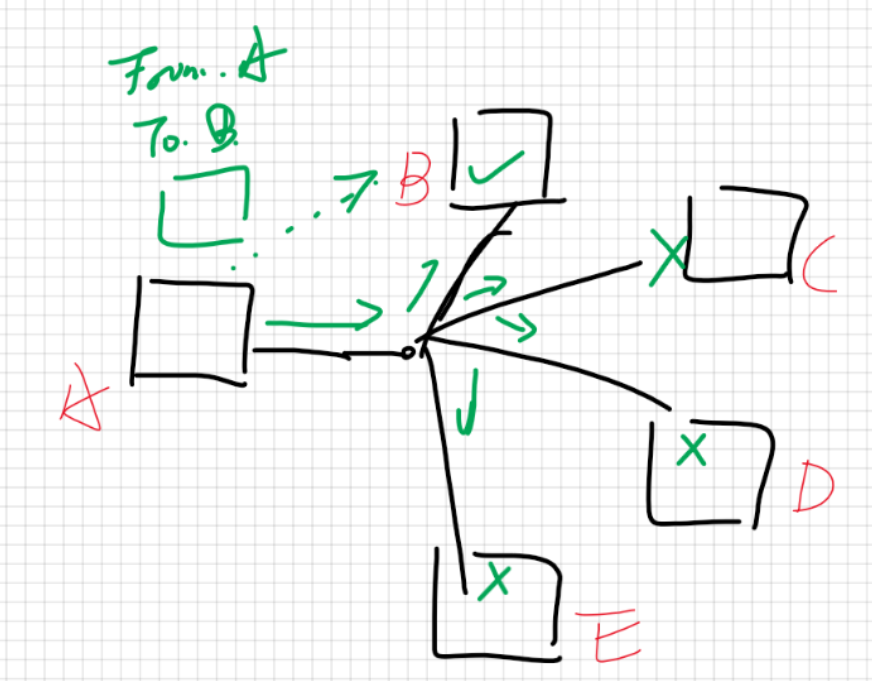 From. A
To. B.
B
C
A
D
E